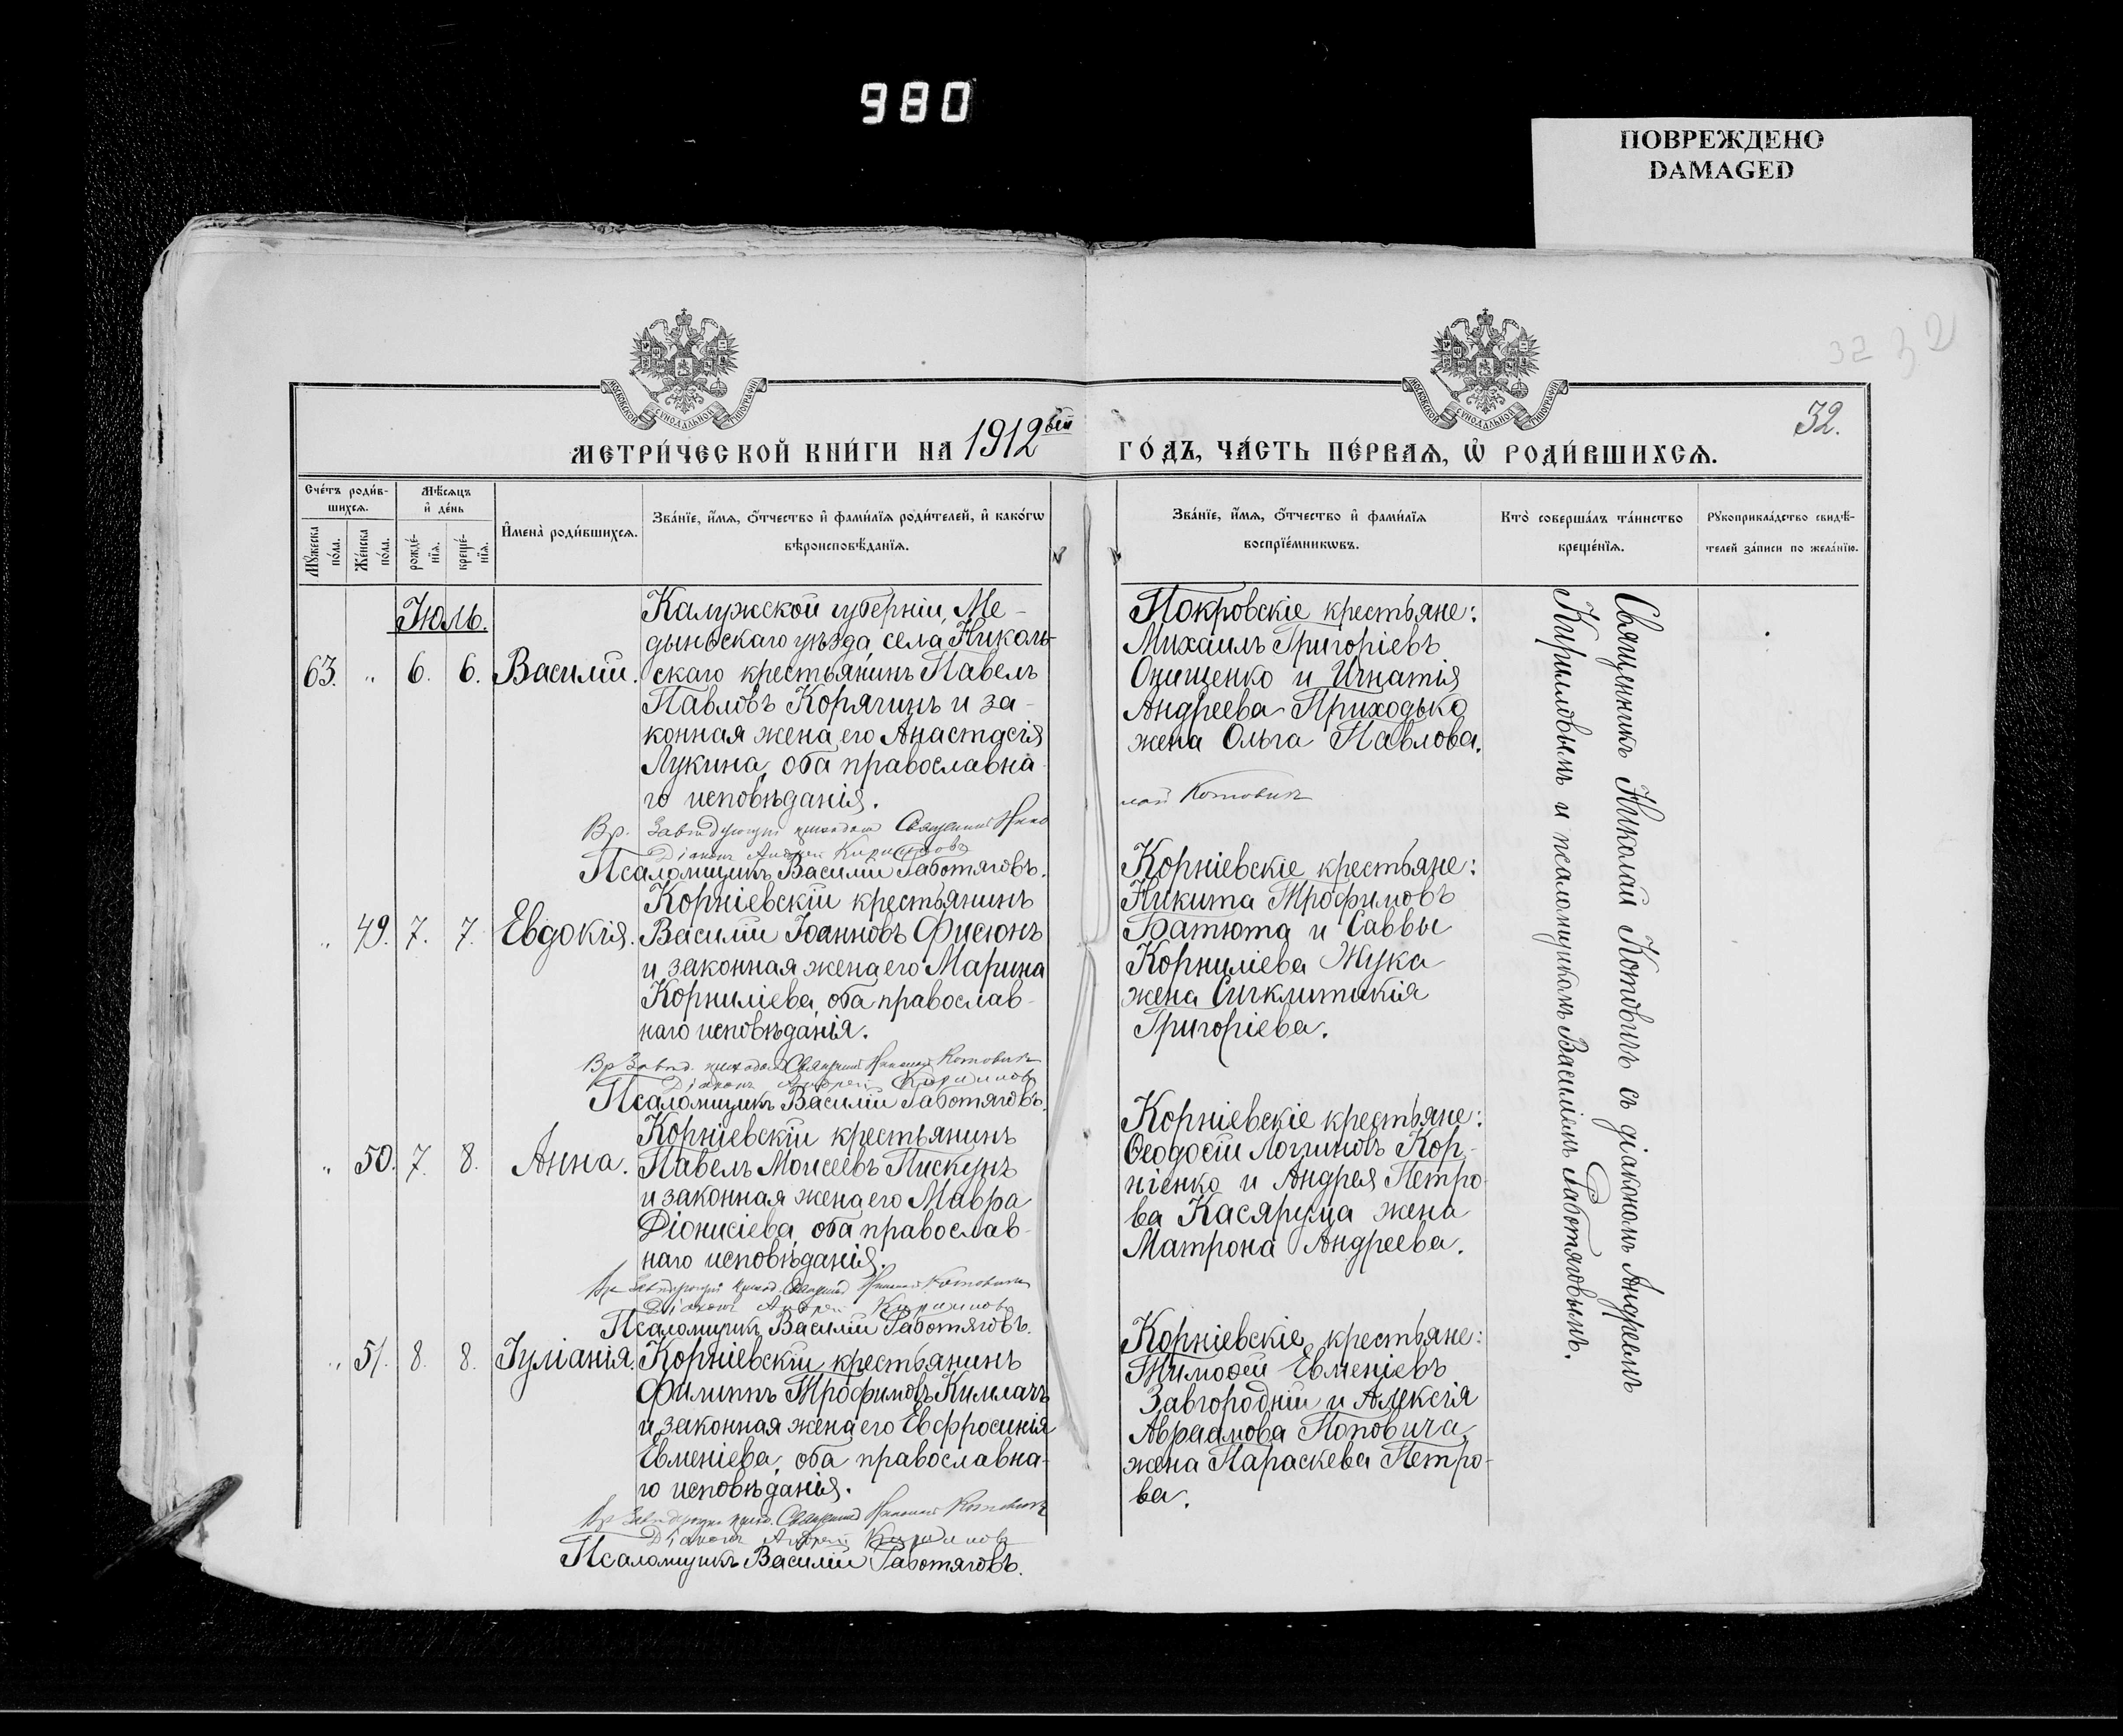 980
ПОВРЕЖДЕНО
DAMAGED
32 32
32.
МОСКОВСКОЙ СѴНОДАЛЬНОЙ ТИПОГРАФІИ
МОСКОВСКОЙ СѴНОДАЛЬНОЙ ТИПОГРАФІИ
МЕТРИ́ЧЕСКОЙ КНИ́ГИ НА 1912 ый
ГО́ДЪ, ЧА́СТЬ ПЕ́РВАѦ, Ѡ҆ РОДИ́ВШИХСѦ.
Сче́тъ роди́в-
шихсѧ.
Мꙋ́жеска
по́ла.
Же́нска
по́ла.
Мѣ́сѧцъ
и҆ де́нь
рожде́-
нїѧ.
креще́-
нїѧ.
И҆мена̀ роди́вшихсѧ.
Зва́нїе, и҆́мѧ, ѻ҆́тчество и҆ фами́лїѧ роди́телей, и҆ како́гѡ
вѣроисповѣ́данїѧ.
Зва́нїе, и҆́мѧ, ѻ҆́тчество и҆ фами́лїѧ
воспрїе́мникѡвъ.
Кто̀ соверша́лъ та́инство
креще́нїѧ.
Рꙋкоприкла́дство свидѣ́-
телей за́писи по жела́нїю.
Іюль.
63. „ 6. 6. Василій.
Калужской губерніи, Ме-
дынскаго уѣзда, села Николь-
скаго крестьянинъ Павелъ
Павловъ Корягинъ и за-
конная жена его Анастасія
Лукина, оба православна-
го исповѣданія.
Вр. Завѣдующій приходомъ Священникъ Нико
лай Котовичъ
Діаконъ Андрей Кирилловъ
Псаломщикъ Василій Работяговъ.
Покровскіе крестьяне:
Михаилъ Григоріевъ
Онищенко и Игнатія
Андреева Приходько
жена Ольга Павлова.
„ 49. 7. 7. Евдокія.
Корніевскій крестьянинъ
Василій Іоанновъ Фисюнъ
и законная жена его Марина
Корниліева, оба православ-
наго исповѣданія.
Вр Завѣд. приходомъ Священникъ Николай Котовичъ
Діаконъ Андрей Кирилловъ
Псаломщикъ Василій Работяговъ.
Корніевскіе крестьяне:
Никита Трофимовъ
Батюта и Саввы
Корниліева Жука
жена Сигклитикія
Григоріева.
„ 50. 7. 8. Анна.
Корніевскій крестьянинъ
Павелъ Моисеевъ Пискунъ
и законная жена его Мавра
Діонисіева, оба православ-
наго исповѣданія.
Вр Завѣдующій приход. Священникъ Николай Котовичъ
Діаконъ Андрей Кирилловъ
Псаломщикъ Василій Работяговъ.
Корніевскіе крестьяне:
Ѳеодосій Логиновъ Кор-
ніенко и Андрея Петро-
ва Касярума жена
Матрона Андреева.
„ 51. 8. 8. Іуліанія.
Корніевскій крестьянинъ
Филиппъ Трофимовъ Кимлачъ
и законная жена его Евфросинія
Евменіева, оба православна-
го исповѣданія.
Вр Завѣдующій прих. Священникъ Николай Котовичъ
Діаконъ Андрей Кирилловъ
Псаломщикъ Василій Работяговъ.
Корніевскіе крестьяне:
Тимоѳей Евменіевъ
Завгородній и Алексія
Авраамова Поповича
жена Параскева Петро-
ва.
Священникъ Николай Котовичъ съ діакономъ Андреемъ
Кирилловымъ и псаломщикомъ Василіемъ Работяговымъ.